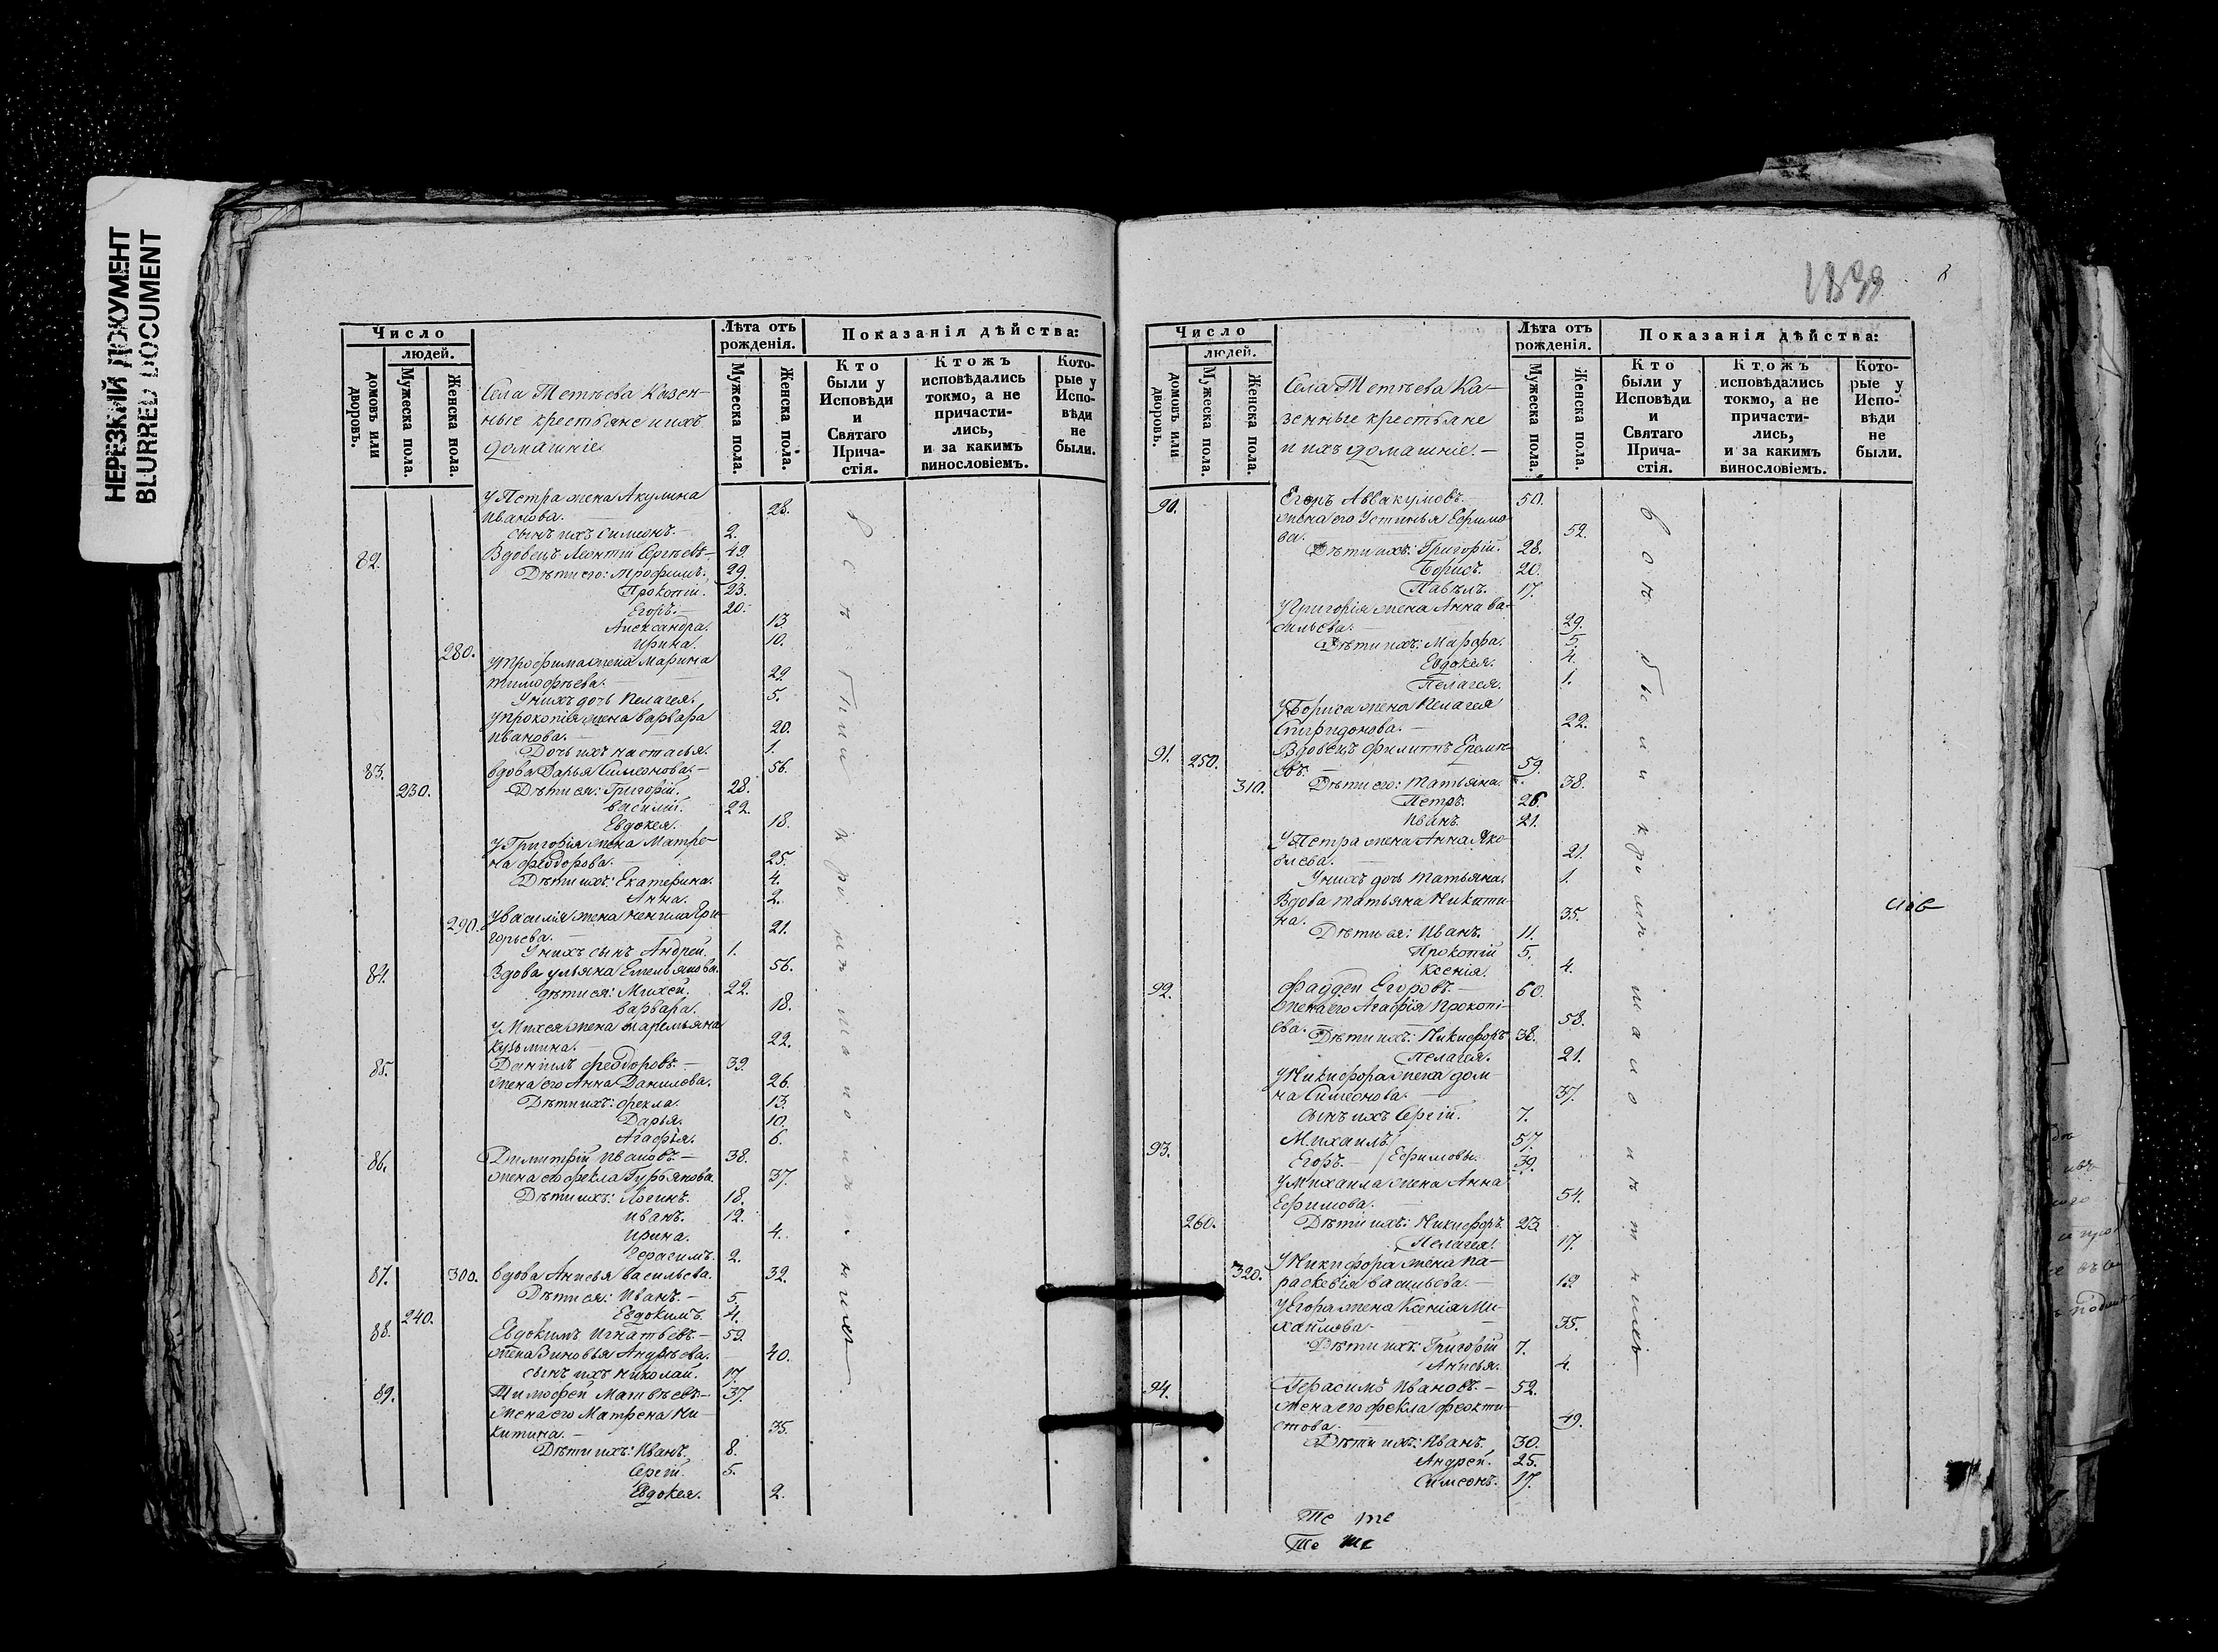 НЕРЕЗКИЙ ДОКУМЕНТ
BLURRED DOCUMENT
Число
людей.
домовъ или дворовъ.
Мужеска пола.
Женска пола.
Села Тетѣева Казен-
ные крестьяне и ихъ
домашніе
Лѣта отъ рожденія.
Мужеска пола.
Женска пола.
Показанія дѣйства:
Кто были у Исповѣди и Святаго Причастія.
Ктожъ исповѣдались токмо, а не причастились, и за какимъ винословіемъ.
Которые у Исповѣди не были.
У Петра жена Акулина
Иванова. 28.
сынъ ихъ Симеонъ. 2.
82. Вдовецъ Леонтій Сергѣевъ 49.
Дѣти его: Трофимъ. 29.
Прокопій. 23.
Егоръ. 20.
Александра. 13.
280. Ирина. 10.
У Трофима жена Марина
Тимофѣева. 29.
У нихъ дочь Пелагея. 5.
У Прокопія жена Варвара
Иванова. 20.
Дочь ихъ Настасья. 1.
83. Вдова Дарья Симеонова. 56.
230. Дѣти ея: Григорій. 28.
Василій. 22.
Евдокея. 18.
У Григорія жена Матре-
на Феодорова. 25.
Дѣти ихъ: Екатерина. 4.
Анна. 2.
290. У Василія жена Ненила Гри-
горьева. 21.
У нихъ сынъ Андрей. 1.
84. Вдова Ульяна Емельянова. 56.
Дѣти ея: Михей. 22.
Варвара. 18.
У Михея жена Маремьяна
Кузьмина. 22.
85. Даніилъ Феодоровъ. 39.
жена его Анна Данилова. 26.
Дѣти ихъ: Фекла. 13.
Дарья. 10.
Агафья. 6.
86. Димитрій Ивановъ. 38.
жена его Фекла Гурьянова. 37.
Дѣти ихъ: Логинъ. 18.
Иванъ. 12.
Ирина. 4.
Герасимъ. 2.
87. 300. Вдова Анисья Васильева. 32.
Дѣти ея: Иванъ. 5.
240. Евдокимъ. 4.
88. Евдокимъ Игнатьевъ. 59.
жена Зиновья Андрѣева. 40.
сынъ ихъ Николай. 17.
89. Тимофей Матвѣевъ 37.
жена его Матрена Ни-
китина. 35.
Дѣти ихъ: Иванъ. 8.
Сергій. 5.
Евдокея. 2.
1839
Число
людей.
домовъ или дворовъ.
Мужеска пола.
Женска пола.
Села Тетѣева Ка-
зенные крестьяне
и ихъ домашніе.
Лѣта отъ рожденія.
Мужеска пола.
Женска пола.
Показанія дѣйства:
Кто были у Исповѣди и Святаго Причастія.
Ктожъ исповѣдались токмо, а не причастились, и за какимъ винословіемъ.
Которые у Исповѣди не были.
90. Егоръ Аввакумовъ. 50.
жена его Устинья Ефимо-
ва. 52.
Дѣти ихъ: Григорій. 28.
Борисъ. 20.
Павелъ. 17.
У Григорія жена Анна Ва-
сильева. 29.
Дѣти ихъ: Марфа. 5.
Евдокея. 4.
Пелагея. 1.
У Бориса жена Пелагея
Спиридонова. 22.
91. 250. Вдовецъ Филиппъ Еремѣ-
евъ. 59.
310. Дѣти его: Татьяна. 38.
Петръ. 26.
Иванъ. 21.
У Петра жена Анна Яко-
влева. 21.
У нихъ дочь Татьяна. 1.
Вдова Татьяна Никити-
на. 35.
Дѣти ея: Иванъ. 11.
Прокопій 5.
Ксенія. 4.
92. Фаддей Егоровъ. 60.
жена его Агафія Прокопі-
ева. 58.
Дѣти ихъ: Никифоръ 38.
Пелагея. 21.
У Никифора жена Дом-
на Симеонова. 37.
сынъ ихъ Сергій. 7.
93. Михаилъ 57.
Егоръ. Ефимовы. 39.
У Михаила жена Анна
Ефимова. 54.
260. Дѣти ихъ: Никифоръ. 23.
Пелагея. 17.
320. У Никифора жена Па-
раскевія Васильева. 19
У Егора жена Ксенія Ми-
хайлова. 35.
Дѣти ихъ: Григорій 7.
Анисья. 4.
94. Герасимъ Ивановъ. 52.
жена его Фекла Феокти-
стова. 49.
Дѣти ихъ: Иванъ. 30.
Андрей. 25.
Симеонъ. 17.
Те те
Те те
всѣ были кромѣ малолѣтнихъ